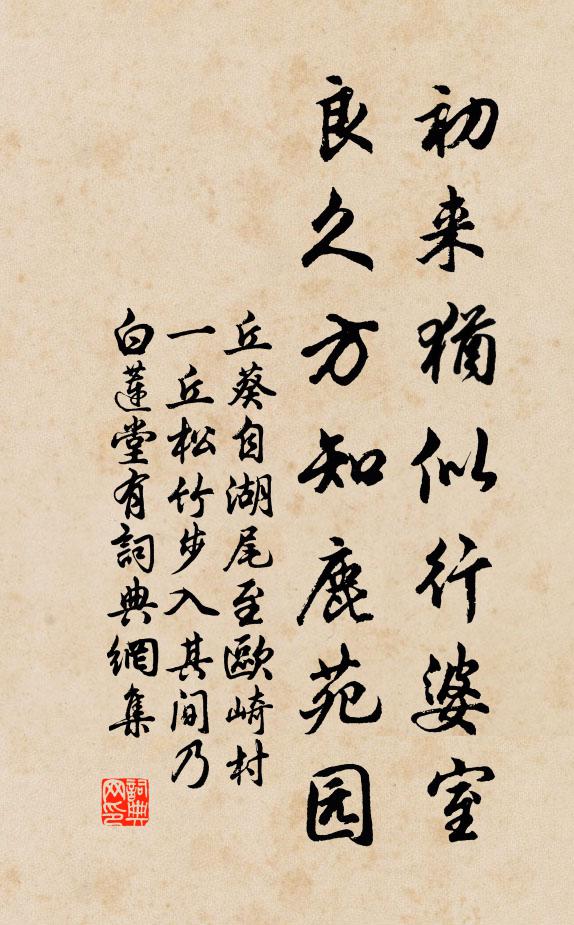 初来犹似行婆室
良久方知鹿苑园
丘葵自湖尾至歐崎村
一丘松竹步入其间乃
白蓮堂有詞典網集
詞典网印